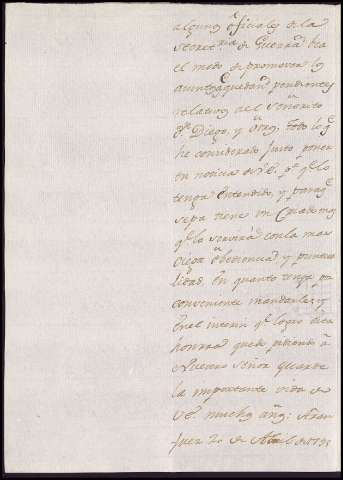 algunos oficiales de la
Secretria de Guerra, sea
el modo de promover los
asuntos q quedan pendientes
relativos del Señorito
Dn Diego, y otros. Todo lo q
he considerado justo poner
en noticia de V.E. pa q lo
tenga entendido, y para q
sepa tiene un Criado mas
q lo servirá con la mas
ciega obediencia y puntua-
lidad, en quanto tenga por
conveniente mandarle; y
en el interin q logro dicha
honrra quedo pidiendo a
Nuestro Señor guarde
la importante vida de
VE muchos añs: Aran
juez 2. de Abril de